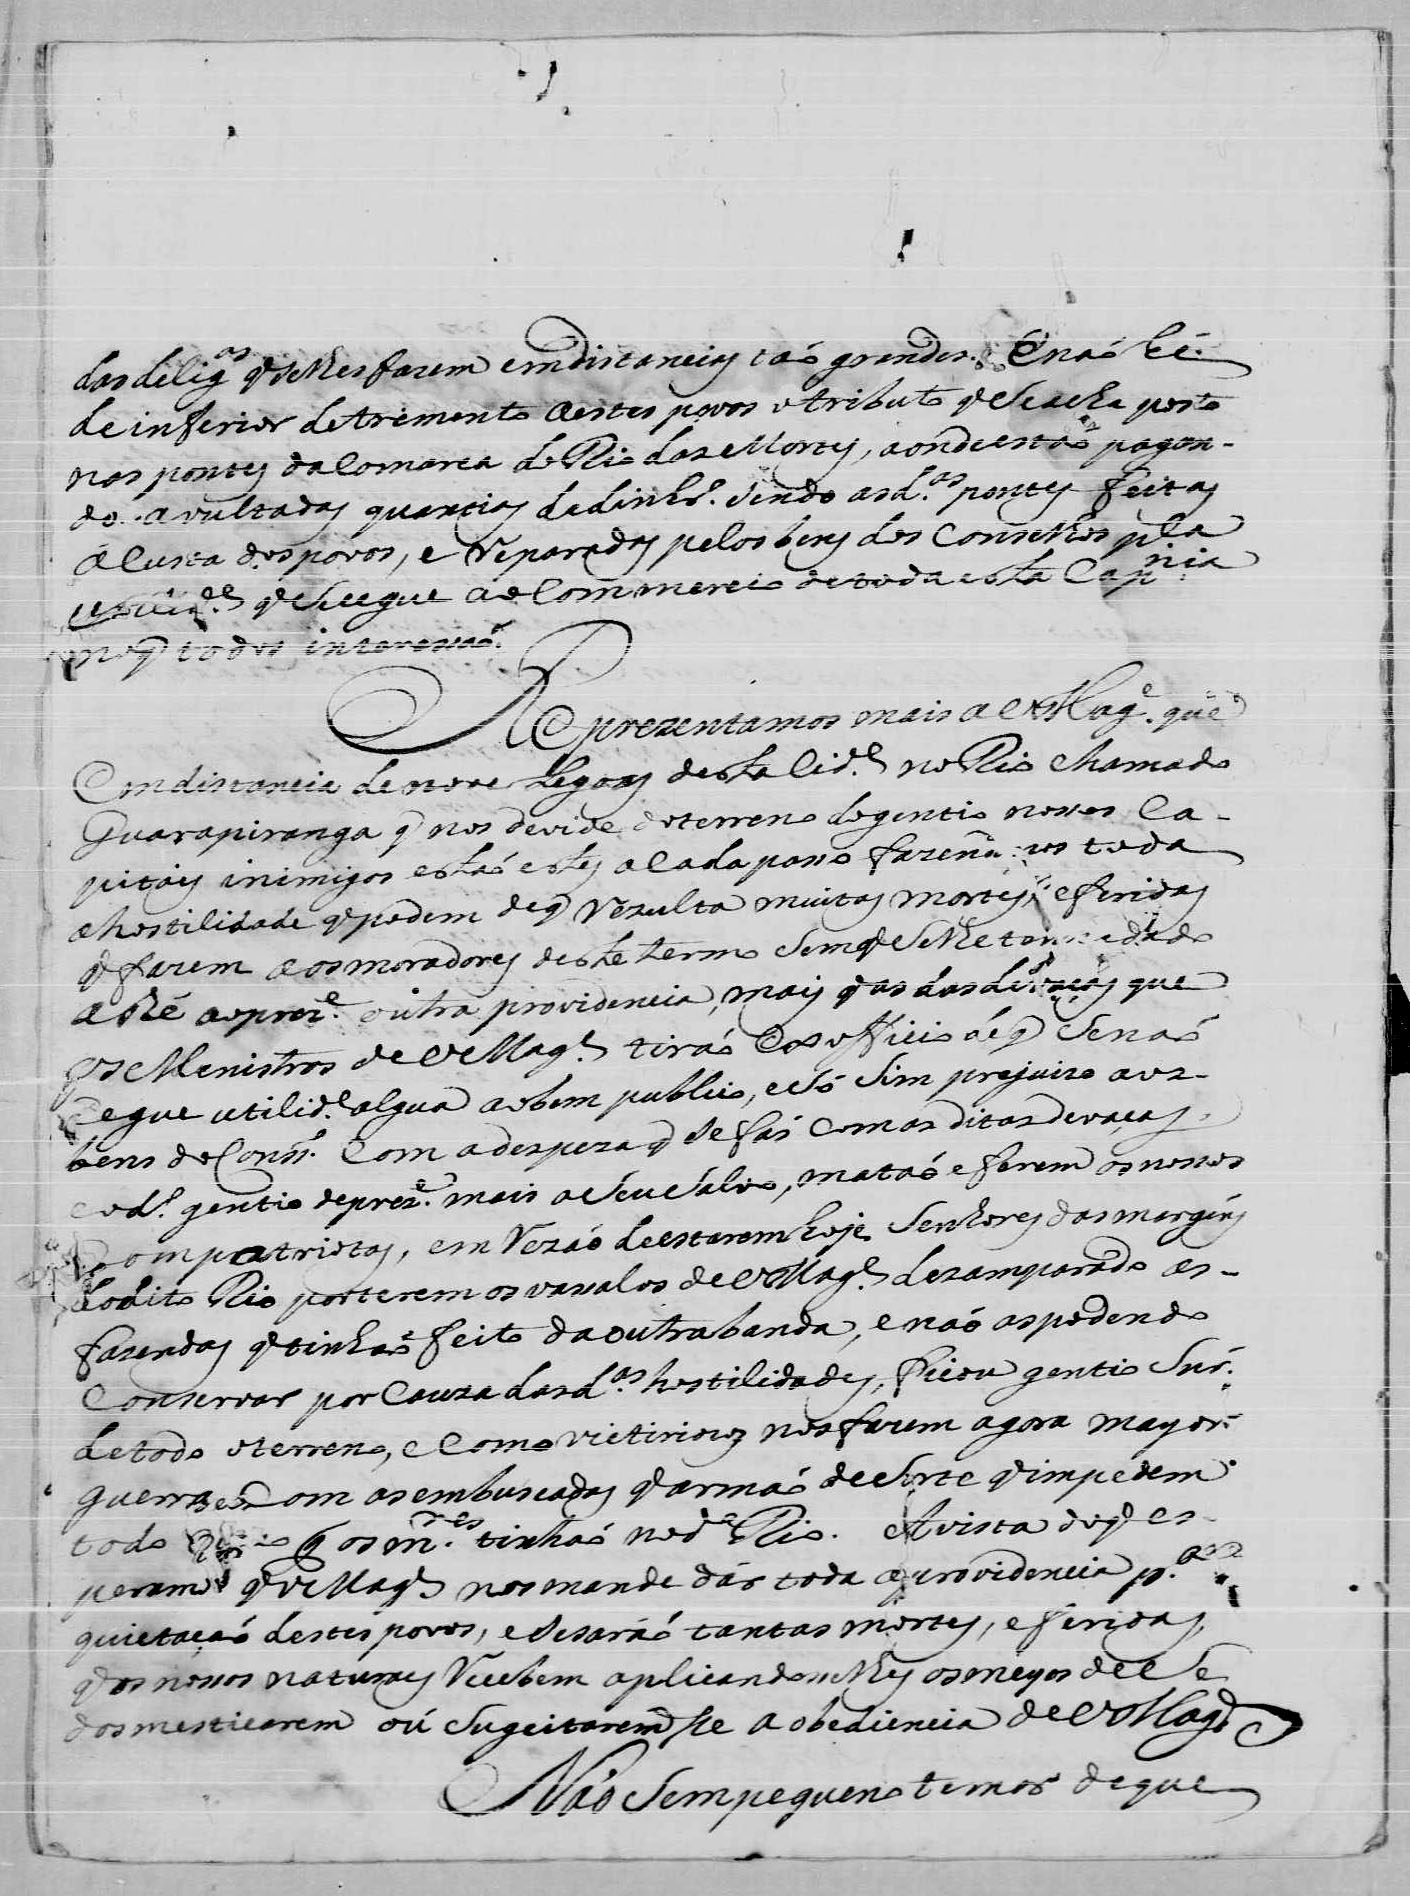 das delig.as q̃ se lhes fazem em distancias taó grandes. E naó hé
de inferior detrimento aestes povos o tributo q̃ se acha posto
nas pontes da Comarca do Rio das Mortes, aonde estaó pagan-
do avultadas quantias de dinhr.º sendo as d.as pontes feitas
á Custa dos povos, e reparadas pelos bens dos Conselhos pla
utilid.e q̃ se segue ao Commercio de toda esta Cap.nia
no q̃ todos interessaó.
Reprezentamos mais a V Mag.e que
Em distancia de nove Legoas desta Cid.e no Rio chamado
Guarapiranga q̃ nos devide o terreno do gentio nossos Ca-
pitáis inimigos estaó estes a Cada passo fazendo nos toda
a hostilidade q̃ podem de q̃ Rezulta muitas mortes, e feridas
q̃ fazem aos moradores deste termo Sem q̃ Se lhe tenha dado
a thé ao prez.e outra providencia, mais q̃ as das devaças que
os Menistros de V Mag.e tiraó Ex officio de q̃ Se naó
segue utilid.e algúa ao bem publico, e Só Sim prejuizo aos
bens do Cons.º Com a despeza q̃ Se fás Com as ditas devaças,
e o d.º gentio de prez.e mais a Seu Salvo, mataó e ferem os nossos
Compatriotas, em Rezaó de estarem hoje Senhores das margens
do dito Rio por terem os vassalos de V Mag.e dezamparado as-
fazendas q̃ tinhaó feito da outra banda, e naó as podendo
Conservar por Cauza das d.as hostilidades, ficou gentio Snr.
de todo o terreno, e Como victiriozos nos fazem agora mayor
guerra Com as embuscadas q̃ armaó de Sorte q̃ impedem
todo q̃ os m.res tinhaó no d.º Rio. A vista do q̃ es-
peramos q̃ V Mag.e nos mande dár toda a providencia p.a
quietaçaó destes povos, e Sesaráó tantas mortes, e feridas,
q̃ os nossos naturaes Recebem aplicando se lhes os meyos de Se
dosmesticarem oú Sugeitarem Se a obediencia de V Mag.e
Naó Sem pequeno temor de que